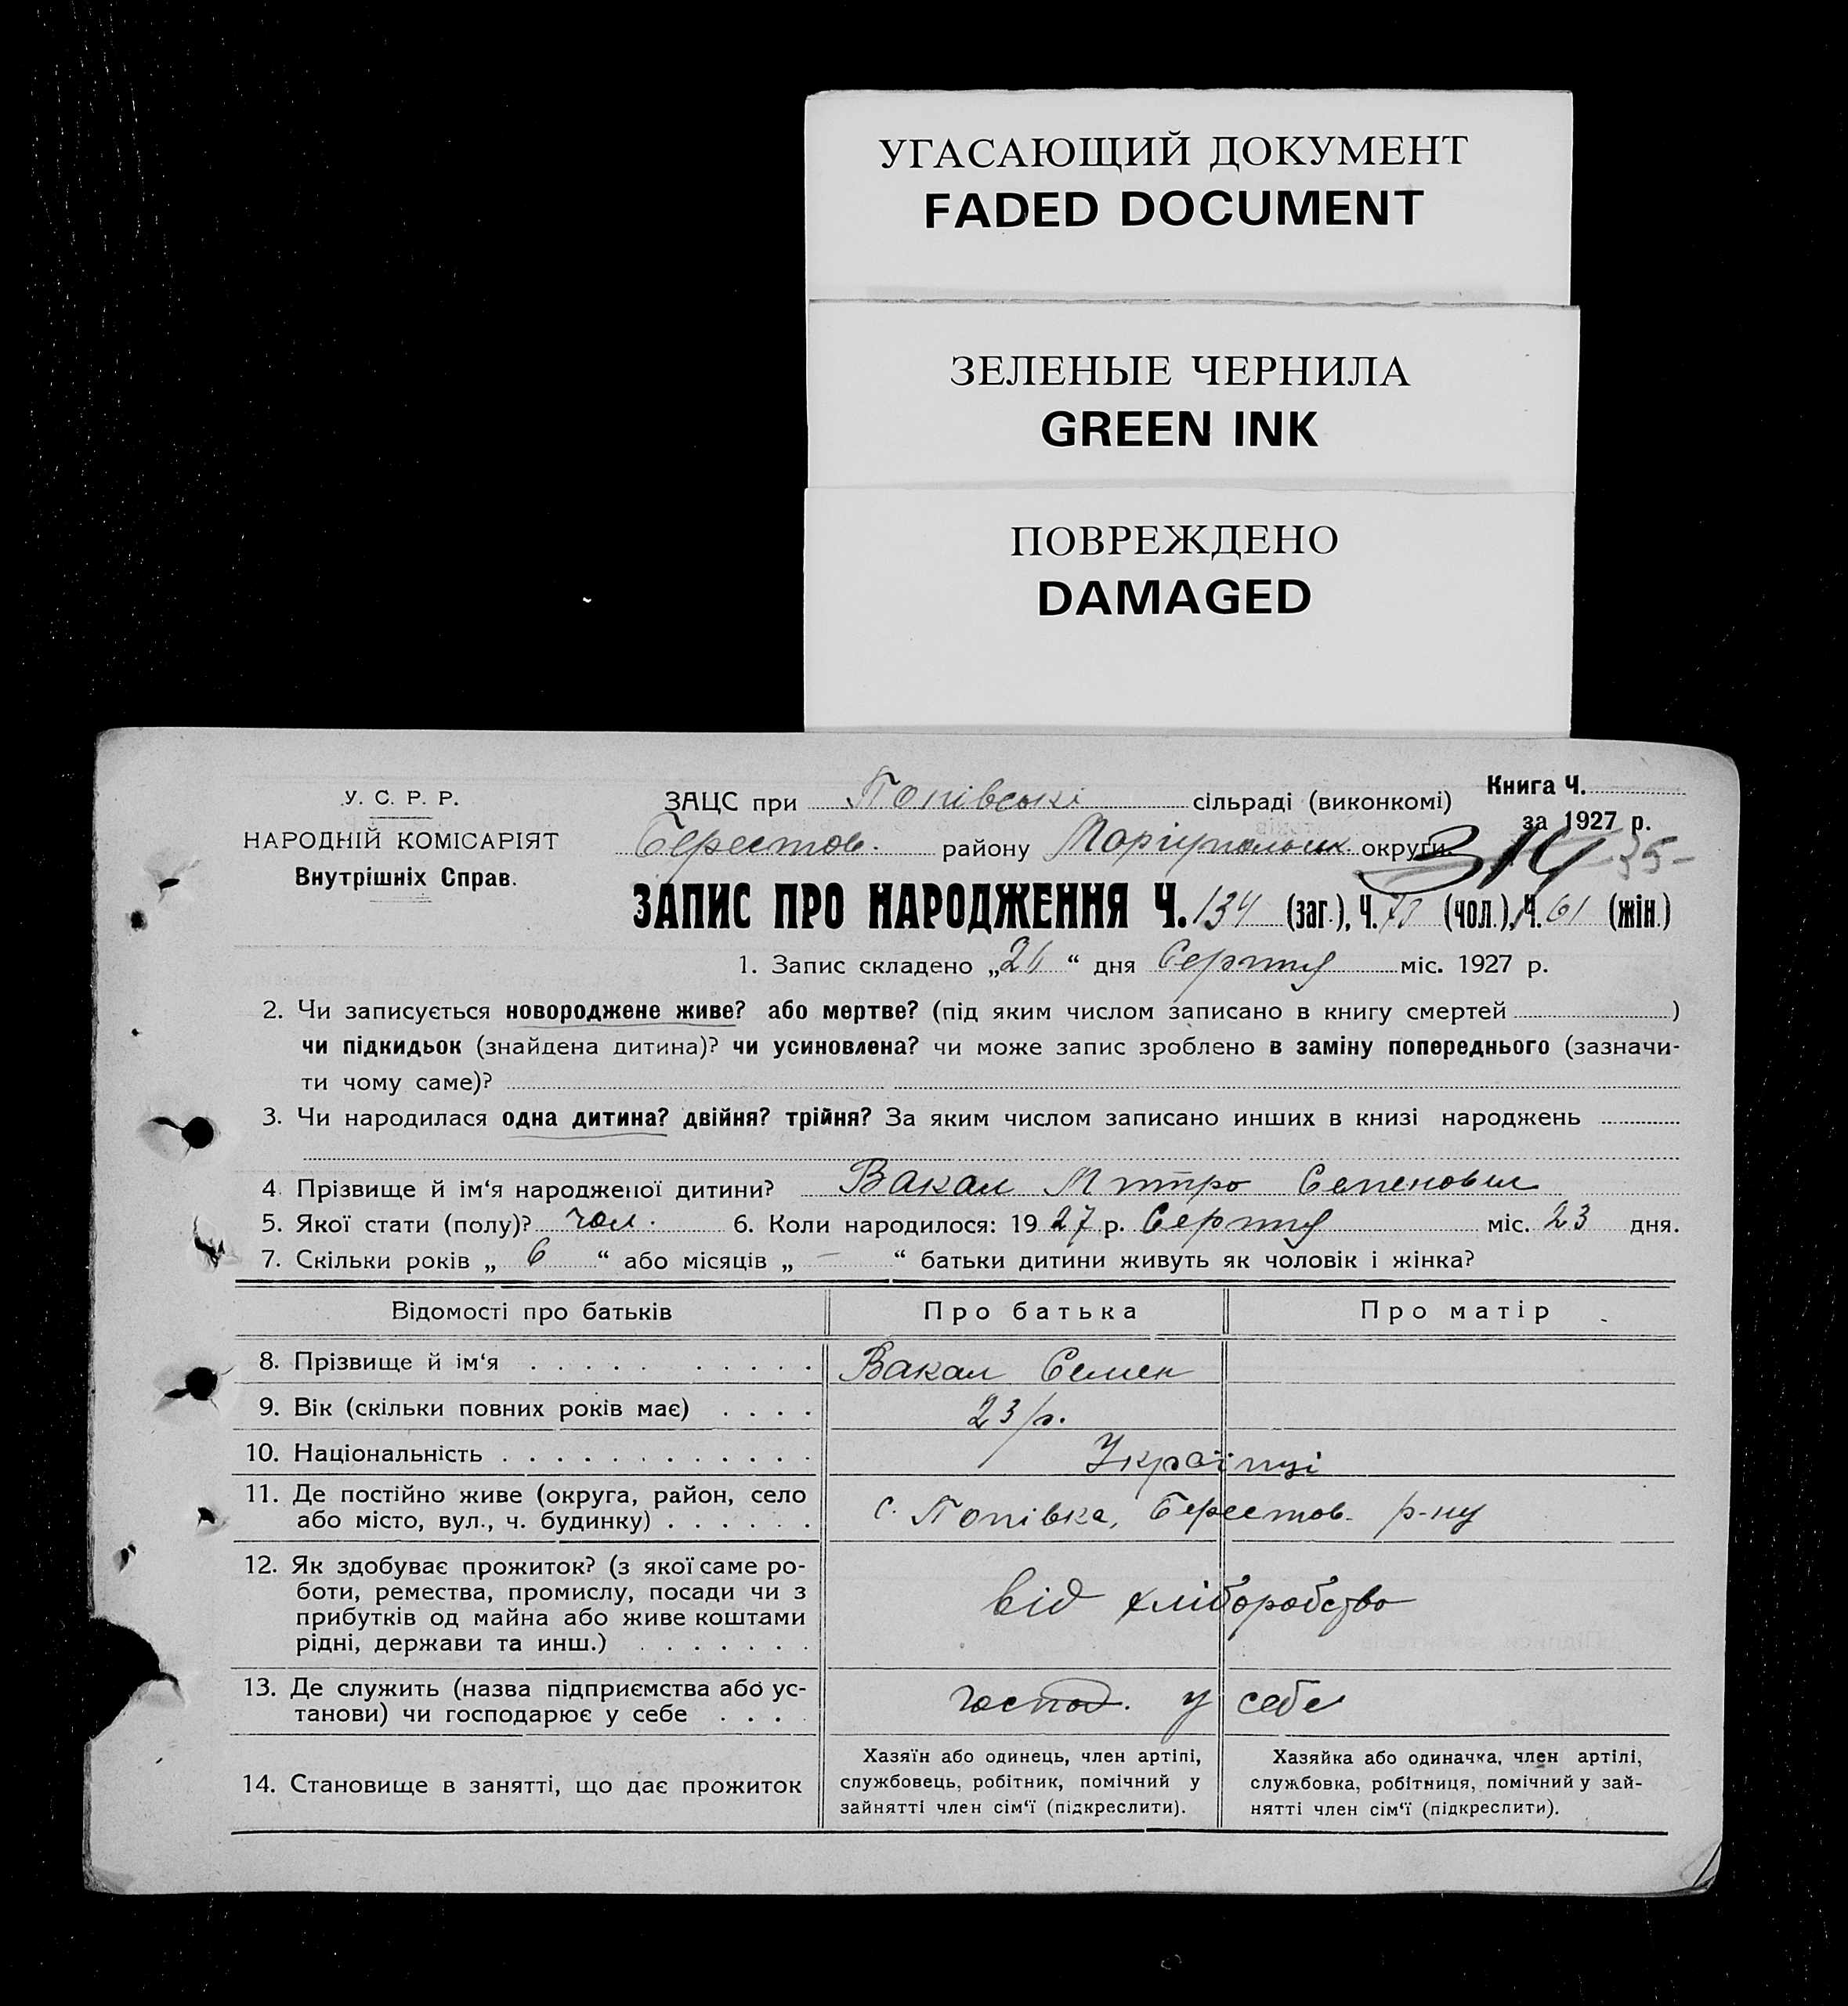 УГАСАЮЩИЙ ДОКУМЕНТ
FADED DOCUMENT
ЗЕЛЕНЫЕ ЧЕРНИЛА
GREEN INK
ПОВРЕЖДЕНО
DAMAGED
У. С. Р. Р.
НАРОДНІЙ КОМІСАРІЯТ
Внутрішніх Справ.
Книга Ч.
за 1927 р.
ЗАЦС при Попівські сільраді (виконкомі)
Берестов. району Маріупольськ округи
314 35-
ЗАПИС ПРО НАРОДЖЕННЯ Ч. 134 (заг.), Ч. (чол.), Ч. 61 (жін.)
1. Запис складено „ “ дня Серпня міс. 1927 р.
2. Чи записується новороджене живе? або мертве? (під яким числом записано в книгу смертей )
чи підкидьок (знайдена дитина)? чи усиновлена? чи може запис зроблено в заміну попереднього (зазначи-
ти чому саме)?
3. Чи народилася одна дитина? двійня? трійня? За яким числом записано инших в книзі народжень
4. Прізвище й ім‘я народженої дитини? Вакал Митро Семенович
5. Якої стати (полу)? чол. 6. Коли народилося: 1927 р. Серпня міс. 23 дня.
7. Скільки років „ 6 “ або місяців „ – “ батьки дитини живуть як чоловік і жінка?
Відомості про батьків Про батька Про матір
8. Прізвище й ім‘я Вакал Семен
9. Вік (скільки повних років має) 23 р.
10. Національність Українці
11. Де постійно живе (округа, район, село
або місто, вул., ч. будинку) с. Попівка, Берестов. р-ну
12. Як здобуває прожиток? (з якої саме ро-
боти, ремества, промислу, посади чи з
прибутків од майна або живе коштами
рідні, держави та инш.) від хліборобство
13. Де служить (назва підприємства або ус-
танови) чи господарює у себе господ. у себе
14. Становище в занятті, що дає прожиток
Хазяїн або одинець, член артілі,
службовець, робітник, помічний у
зайнятті член сім‘ї (підкреслити).
Хазяйка або одиначка, член артілі,
службовка, робітниця, помічний у зай-
нятті член сім‘ї (підкреслити).